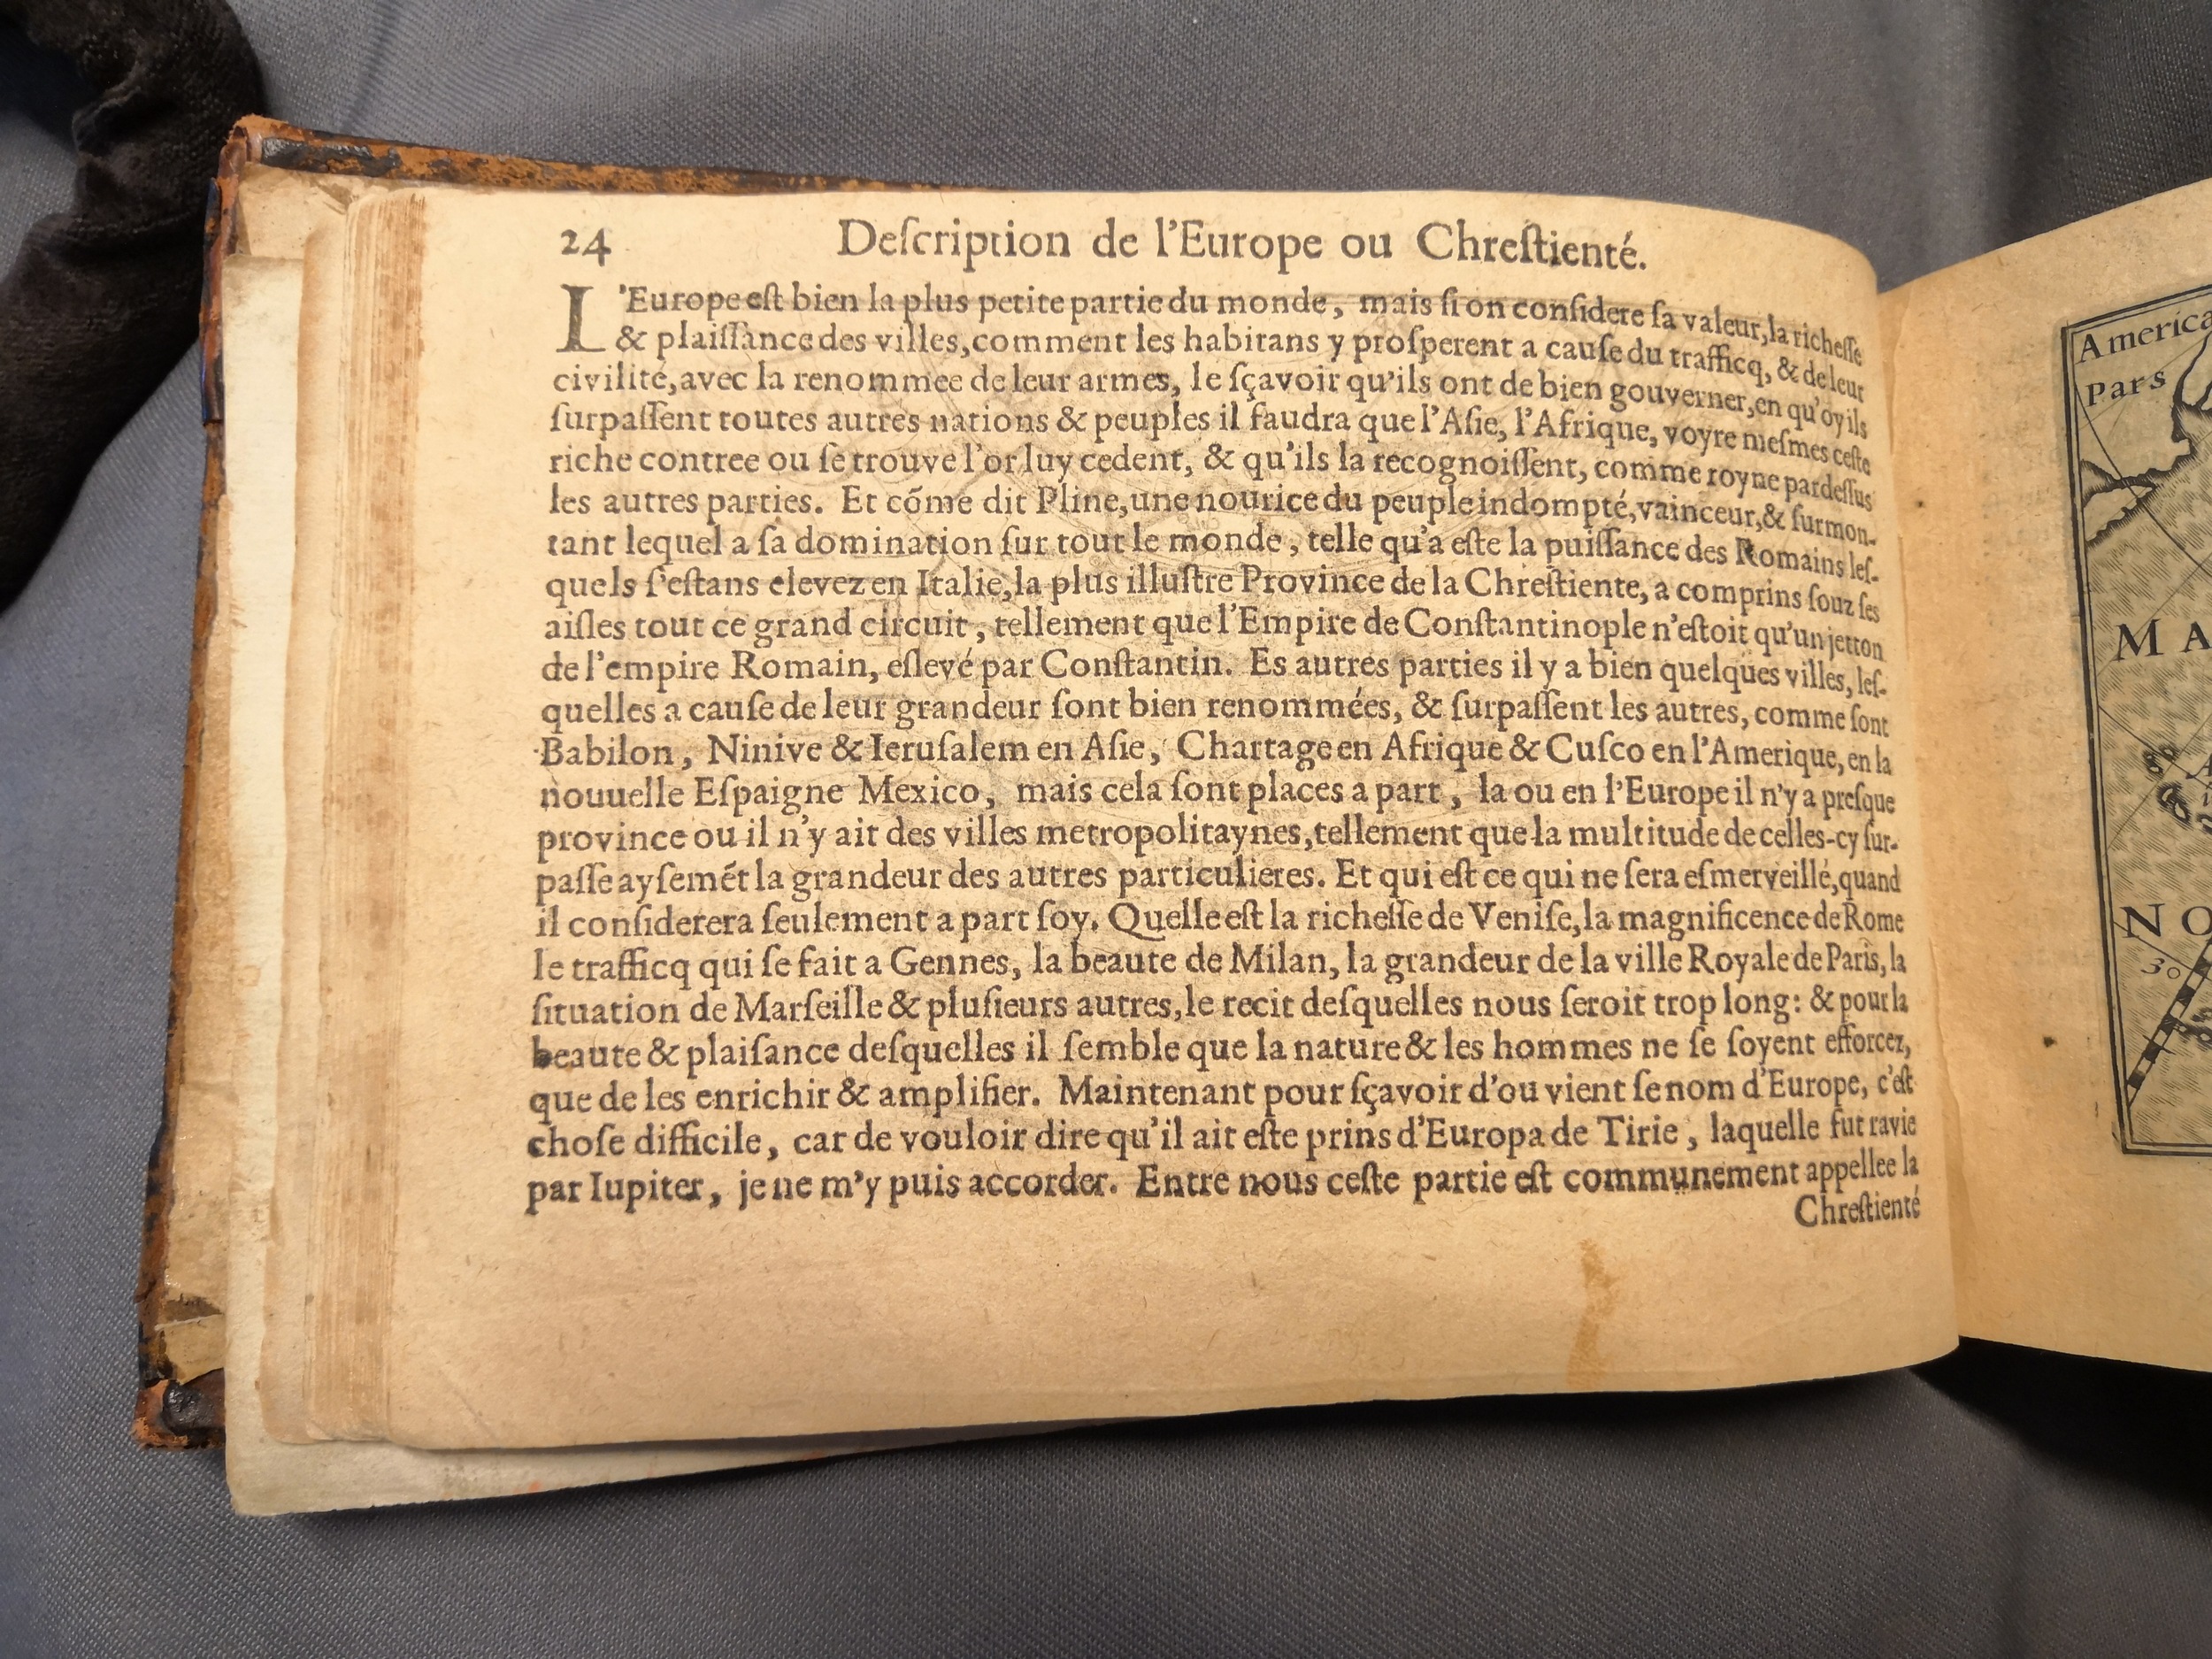 24 Deſcription de l'Europe ou Chreſtienté.
L'Europe eſt bien la plus petite partie du monde, mais ſi on conſidere ſa valeur, la richeſſe
& plaiſſance des villes, comment les habitans y proſperent a cauſe du trafficq, & de leur
civilité, avec la renommee de leur armes, le ſçavoir qu'ils ont de bien gouverner, en qu'oy ils
ſurpaſſent toutes autres nations & peuples il faudra que l'Aſie, l'Afrique, voyre meſmes ceſte
riche contree ou ſe trouve l'or luy cedent, & qu'ils la recognoiſſent, comme royne pardeſſus
les autres parties. Et cõme dit Pline, une nourice du peuple indompté, vainceur, & ſurmon-
tant lequel a ſa domination ſur tout le monde, telle qu'a eſte la puiſſance des Romains leſ-
quels ſ'eſtans elevez en Italie, la plus illuſtre Province de la Chreſtiente, a comprins ſouz ſes
aiſles tout ce grand circuit, tellement que l'Empire de Conſtantinople n'eſtoit qu'un jetton
de l'empire Romain, eſlevé par Conſtantin. Es autres parties il y a bien quelques villes, leſ-
quelles a cauſe de leur grandeur ſont bien renommées, & ſurpaſſent les autres, comme ſont
Babilon, Ninive & Ieruſalem en Aſie, Chartage en Afrique & Cuſco en l'Amerique, en la
nouuelle Eſpaigne Mexico, mais cela ſont places a part, la ou en l'Europe il n'y a preſque
province ou il n'y ait des villes metropolitaynes, tellement que la multitude de celles-cy ſur-
paſſe ayſemẽt la grandeur des autres particulieres. Et qui eſt ce qui ne ſera eſmerveillé, quand
il conſiderera ſeulement a part ſoy. Quelle eſt la richeſſe de Veniſe, la magnificence de Rome
le trafficq qui ſe fait a Gennes, la beaute de Milan, la grandeur de la ville Royale de Paris, la
ſituation de Marſeille & pluſieurs autres, le recit deſquelles nous ſeroit trop long: & pour la
beaute & plaiſance deſquelles il ſemble que la nature & les hommes ne ſe ſoyent efforcez,
que de les enrichir & amplifier. Maintenant pour ſçavoir d'ou vient ſe nom d'Europe, c'eſt
choſe difficile, car de vouloir dire qu'il ait eſte prins d'Europa de Tirie, laquelle fut ravie
par Iupiter, je ne m'y puis accorder. Entre nous ceſte partie eſt communement appellee la
Chreſtienté
America
Pars
30